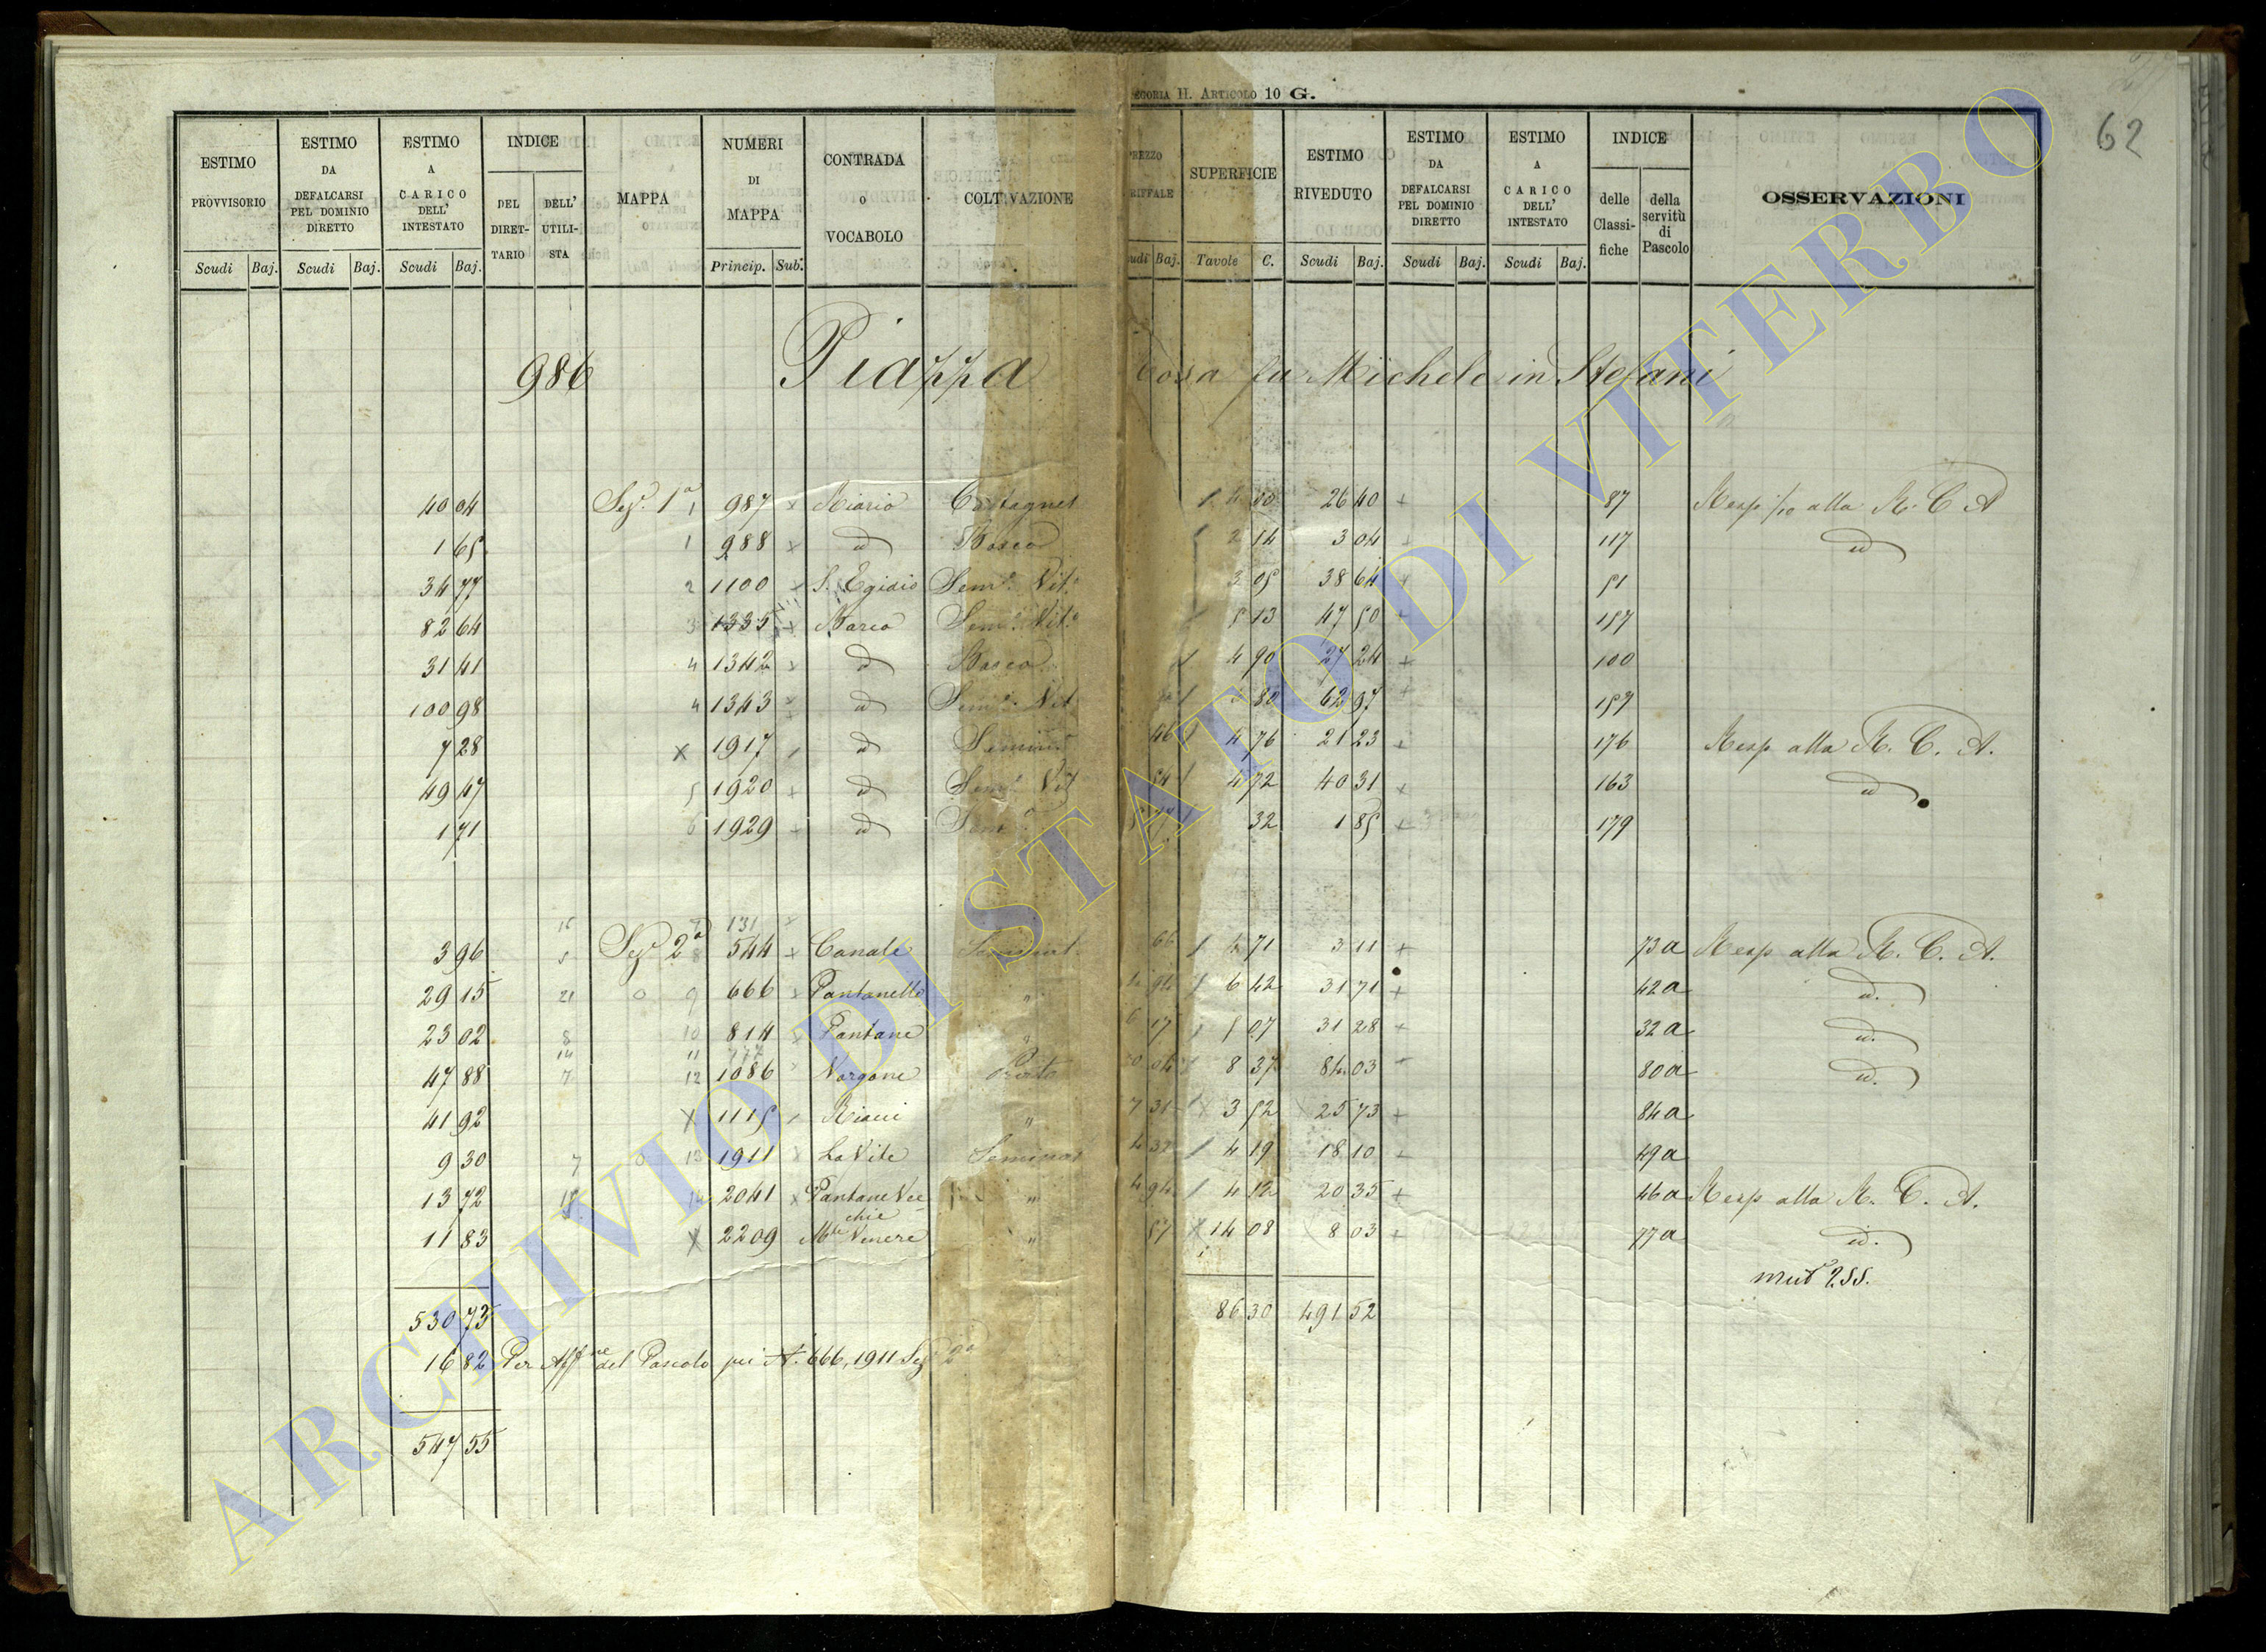 EGORIA II. ARTICOLO 10 G.
62
ESTIMO PROVVISORIO Scudi Baj.
ESTIMO DA DEFALCARSI PEL DOMINIO DIRETTO Scudi Baj.
ESTIMO A CARICO DELL' INTESTATO Scudi Baj.
INDICE DEL DIRET-TARIO DELL' UTILI-STA
MAPPA
NUMERI DI MAPPA Princip. Sub.
CONTRADA O VOCABOLO
COLTIVAZIONE
REZZO RIFFALE udi Baj.
SUPERFICIE Tavole C.
ESTIMO RIVEDUTO Scudi Baj.
ESTIMO DA DEFALCARSI PEL DOMINIO DIRETTO Scudi Baj.
ESTIMO A CARICO DELL' INTESTATO Scudi Baj.
INDICE delle Classi-fiche della servitù di Pascolo
OSSERVAZIONI
986 Piazza Rosa fu Michele in Stefani
40 04 Sez. 1a 1 987 x Riario Castagnet 26 40 + 87 Resp alla R. C. A
1 65 1 988 x id Bosco 2 14 3 04 117 id
34 77 2 1100 S. Egidio Sem.o Vit.o 3 05 38 64 51
82 64 3 1335 Barco Sem.o Vit.o 5 13 47 50 157
31 41 4 1342 x id Bosco 4 90 27 24 + 100
100 98 4 1343 id Sem.o Vit 80 62 97 157
7 28 x 1917 id Semin.o 46 4 76 21 23 + 176 Resp alla R. C. A.
49 47 5 1920 id Sem.o Vit 54 4 72 40 31 x 163 id
1 71 6 1929 id Sem.o 32 1 85 + 179
16 7 131 x
3 96 5 Sez 2a 8 544 x Canale Seminat. 66 4 71 3 11 + 73a Resp alla R. C. A.
29 15 21 o 9 666 x Pantanello " 4 94 6 42 31 71 + 42a id.
23 02 8 10 814 x Pantane " 6 17 5 07 31 28 + 32a id.
14 11 777
47 88 7 12 1086 Norgone Prato 10 04 8 37 84 03 80a id.
41 92 x 1115 Riani " 7 31 3 52 25 73 + 84a
9 30 7 o 13 1911 x La Vite Seminat 4 32 4 19 18 10 49a
13 72 18 14 2041 x Pantane Vec " 4 94 4 12 20 35 + 46a Resp alla R. C. A.
chie
11 83 x 2209 Mte Venere " 57 x 14 08 8 03 + 77a id.
mut 255.
530 73 86 30 491 52
16 82 Per Affne del Pascolo pei N. 666, 1911 Sez 2a
547 55
ARCHIVIO DI STATO DI VITERBO